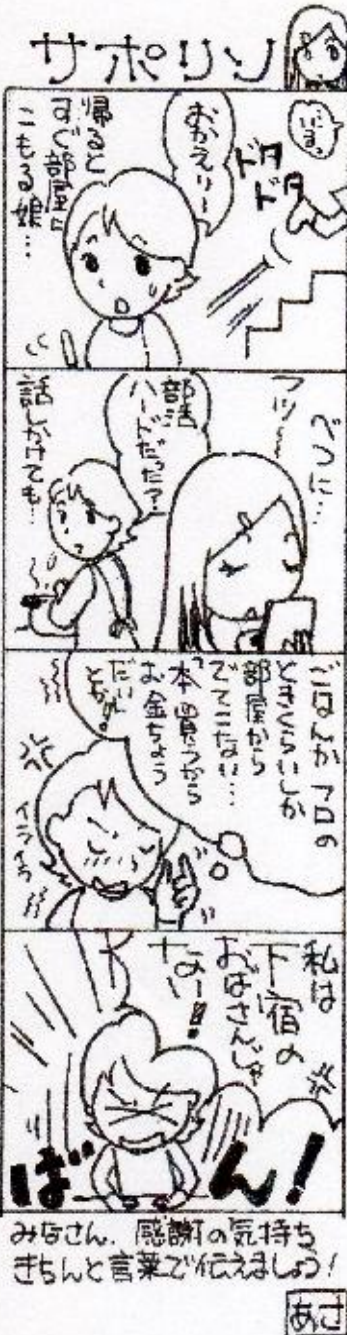 サポリン
おかえりー
ドタ
ドタ
帰ると
すぐ部屋に
こもる娘…
べつに…
部活
ハードだった?
話しかけても…
ごはんか フロの
ときくらいしか
部屋から
でてこない…
「本買うから
お金ちょう
だい」
とか。
イライラ
私は
下宿の
おばさんじゃ
なーい!!
ばん!
みなさん、感謝の気持ち
きちんと言葉で伝えましょう!
あさ